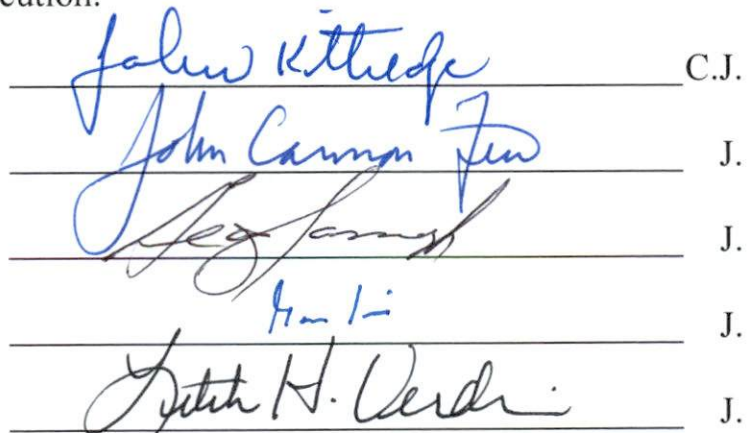 cution.
John Kittredge C.J.
John Cannon Few J.
J.
J.
Letitia H. Verdin J.